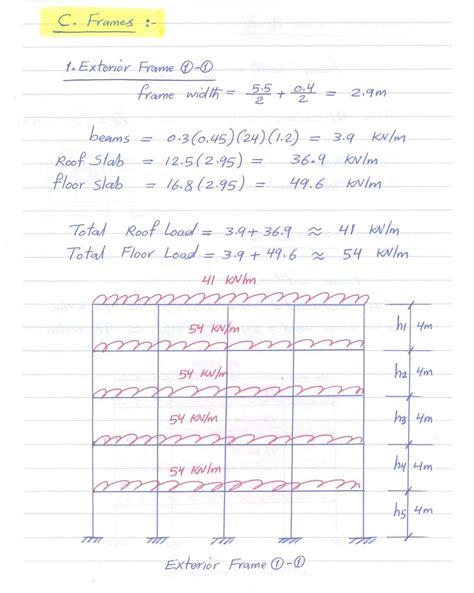 C. Frames :-
1. Exterior Frame ①-①
frame width = 5.5/2 + 0.4/2 = 2.9m
beams = 0.3(0.45)(24)(1.2) = 3.9 KN/m
Roof Slab = 12.5(2.95) = 36.9 KN/m
floor slab = 16.8(2.95) = 49.6 KN/m
Total Roof Load = 3.9+36.9 ≈ 41 KN/m
Total Floor Load = 3.9+49.6 ≈ 54 KN/m
41 KN/m
54 KN/m h1 4m
54 KN/m h2 4m
54 KN/m h3 4m
54 KN/m h4 4m
h5 4m
Exterior Frame ①-①